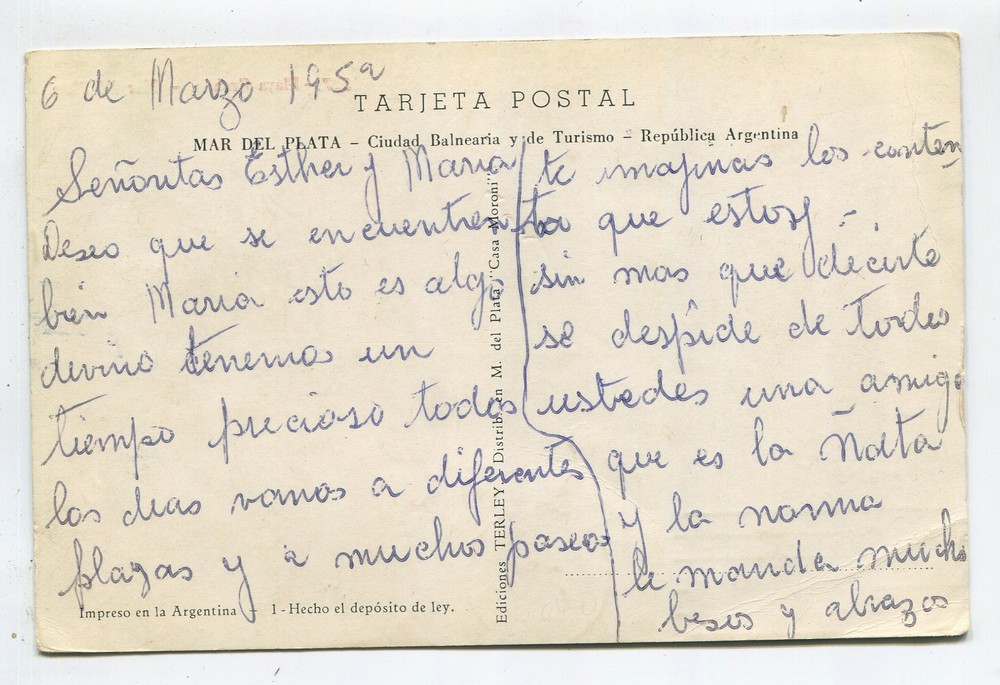 6 de Marzo 1959
TARJETA POSTAL
MAR DEL PLATA – Ciudad Balnearia y de Turismo – República Argentina
Señoritas Esther y Maria
Deseo que se encuentren
bien Maria esto es algo
divino tenemos un
tiempo precioso todos
los dias vamos a diferentes
plazas y a muchos paseos
te imajinas los conten
ta que estoy -.
sin mas que decirte
se despide de todes
ustedes una amiga
que es la Ñata
y la norma
le manda mucho
besos y abrazos
Ediciones TERLEY Distrib. en M. del Plata "Casa Moroni"
Impreso en la Argentina – 1 - Hecho el depósito de ley.